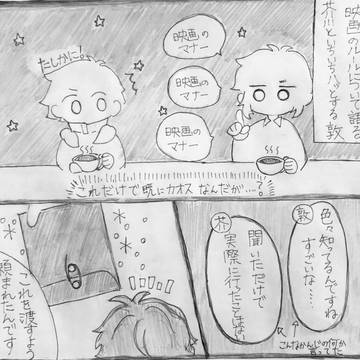 映画のルールについて語る
芥川といちいちハッとする敦
映画の
マナー
映画の
マナー
映画の
マナー
たしかに!
これだけで既にカオスなんだが…?
敦
色々知ってるんですね
すごいな…
芥
聞いただけで
実際に行ったことはない
こんなかんじの何か
言ってた
これを渡すよう
頼まれたんです